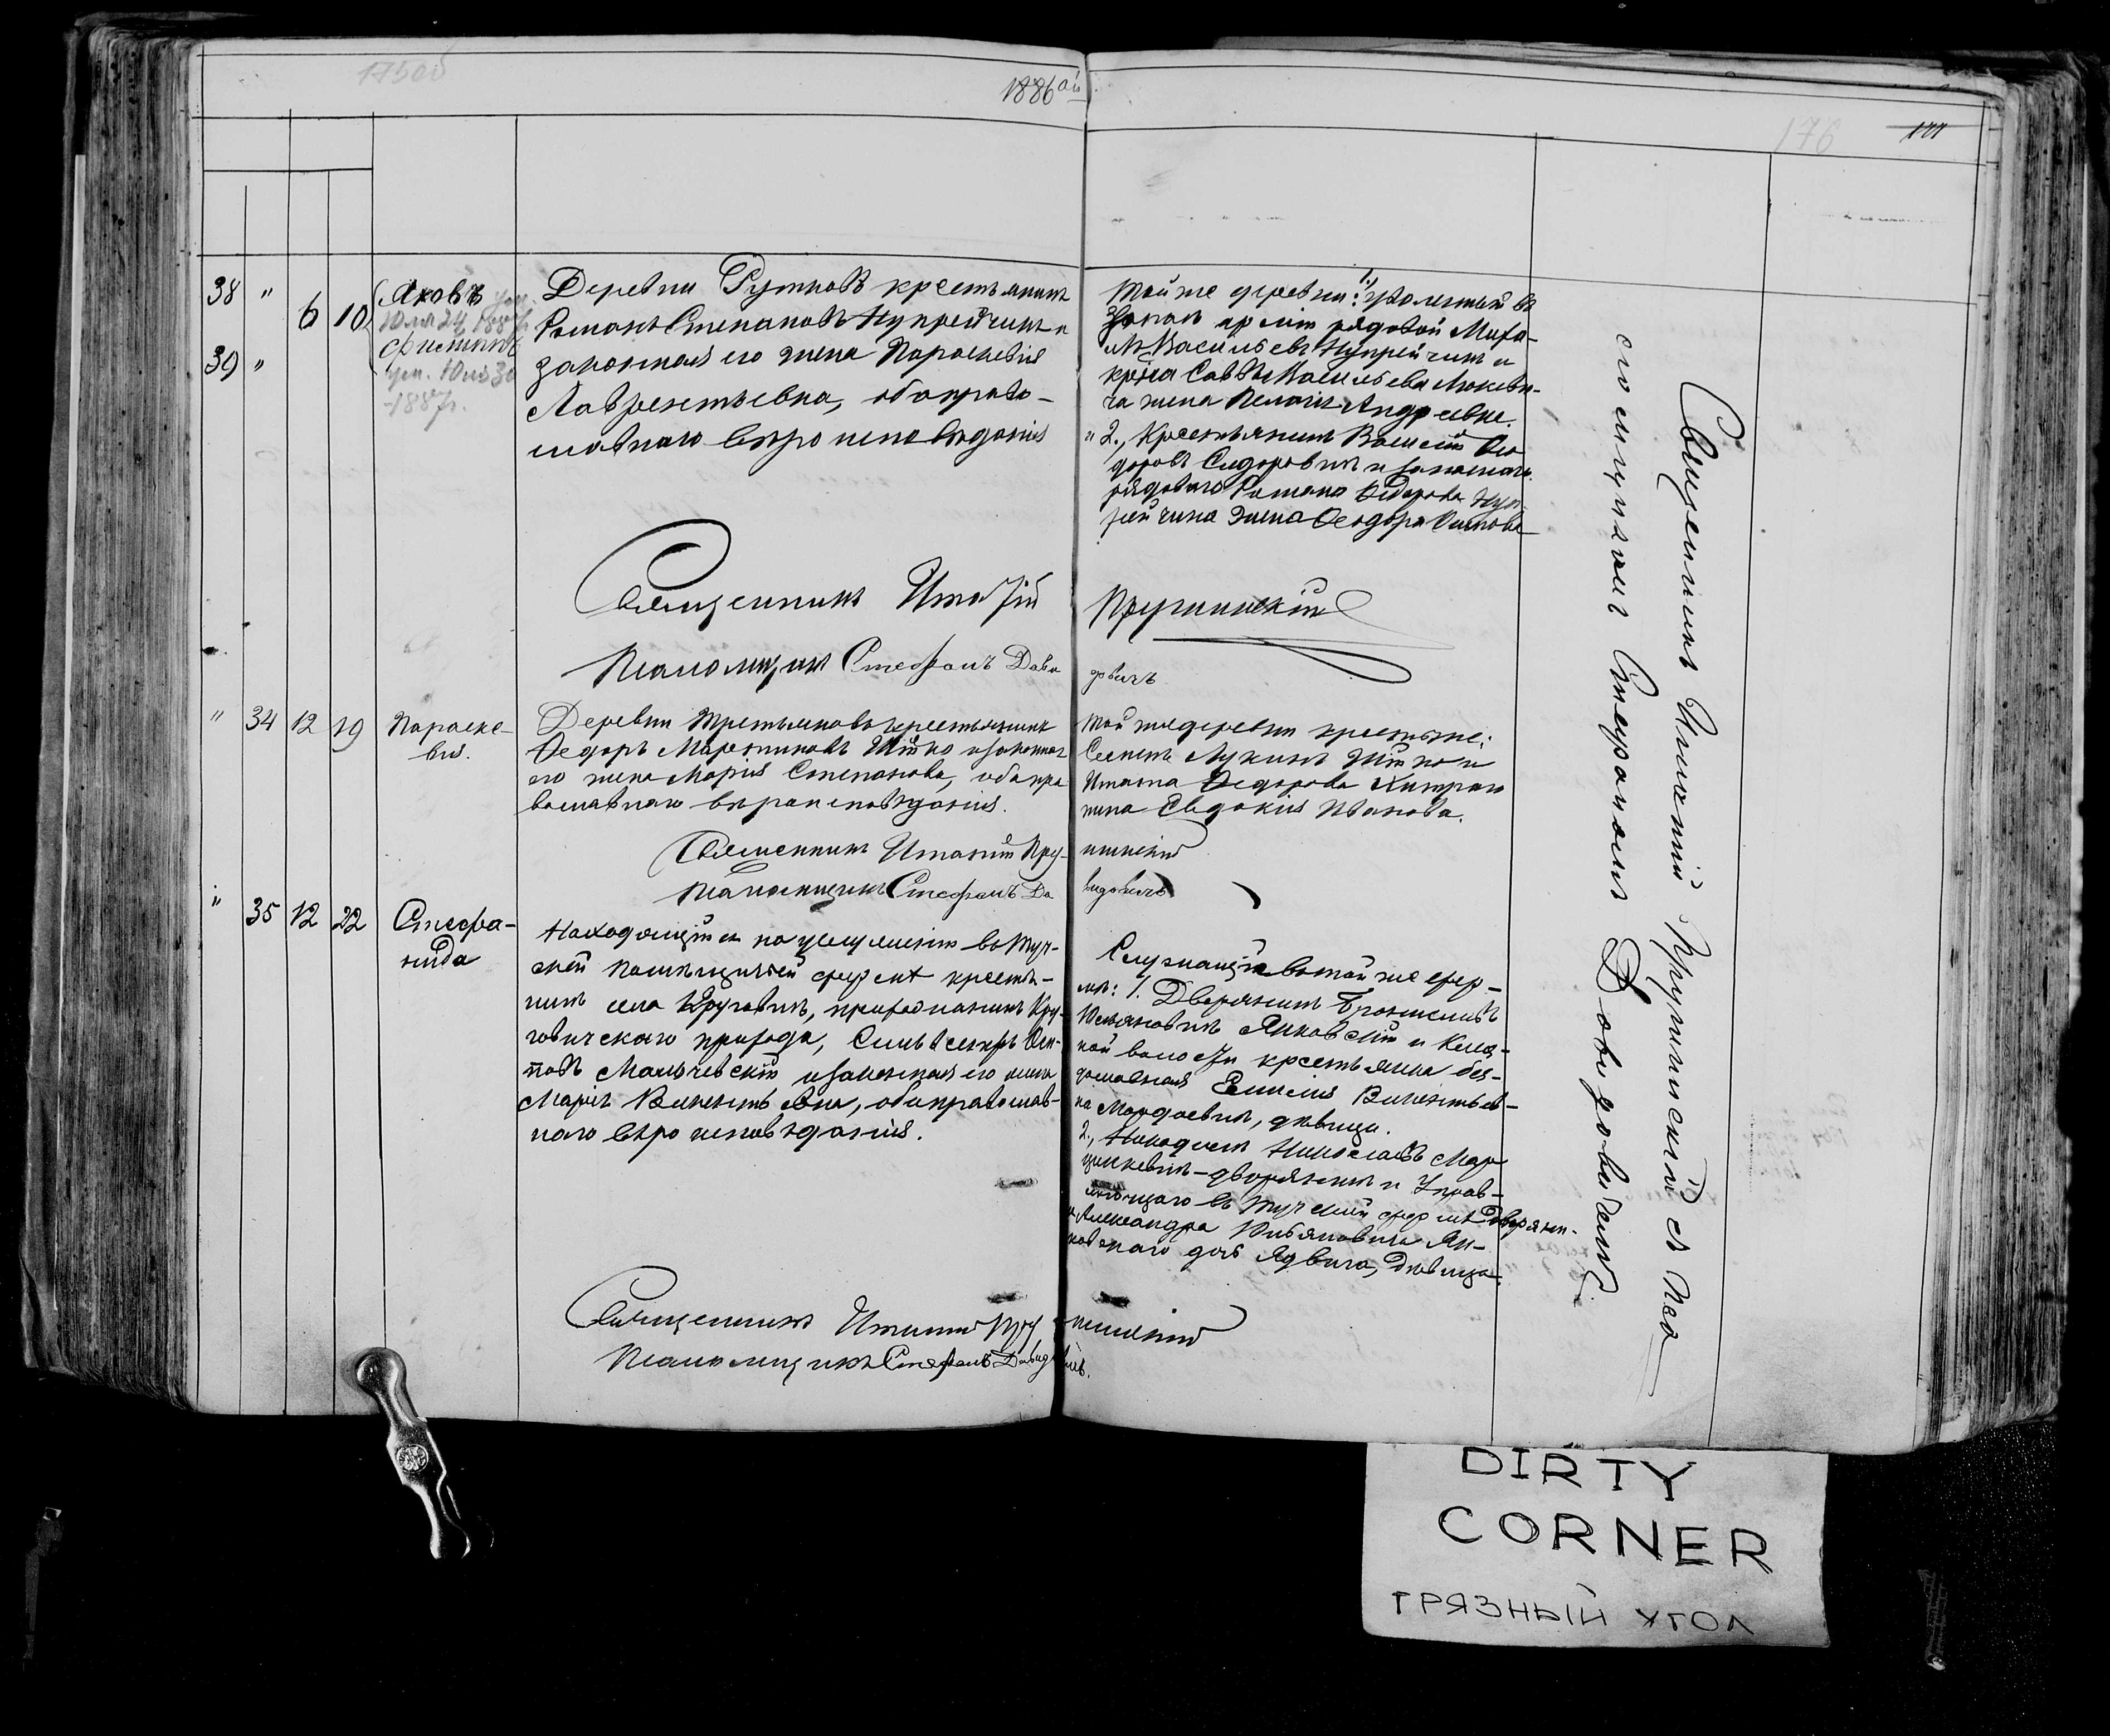 175об
1886 ой
176
177
38 " 6 10 Яковъ ум.
Юля 24 1887 г.
39 " Фистинъ
ум. Юля 30
1887 г.
Деревни Рутковъ крестьянинъ
Романъ Степановъ Нупрейчикъ и
законная его жена Параскевія
Лаврентьевна, оба право-
славнаго вѣроисповѣданія
Той же деревни: 1, уволенный въ
запасъ арміи рядовой Миха-
лъ Васильевъ Нупрейчикъ и
Саввы Васильева
жена Андреевна.
" 2., Крестьянинъ Ѳео
доровъ Сидоровичъ и запаснаго
рядоваго Романа Ѳедорова Нуп-
рейчика жена Ѳеодора
Священникъ Игнатій Пружинскій
Псаломщикъ Стефанъ Давидовичъ
" 34 12 19 Параске-
вія.
Деревни Третьяковъ крестьянинъ
Ѳедоръ Шитко и законная
его жена Марія Степанова, оба пра
вославнаго вѣроисповѣданія.
Той же деревни крестьяне:
Лукинъ Шитко и
Игната Ѳедорова
жена Евдокія Иванова.
Священникъ Игнатій Пружинскій
Псаломщикъ Стефанъ Давидовичъ
" 35 12 22 Стефа-
нида
Находящійся на услуженіи въ Туч-
ской помѣщичьей фермѣ крестья-
нинъ села Круговичъ, прихожанинъ Кру-
говичскаго прихода, Сильвестръ Оси-
повъ Мальчевскій и законная его жена
Марія Викентьевна, оба православ-
наго вѣроисповѣданія.
Служащіе въ той же фер-
мѣ: 1. Дворянинъ Брониславъ
Юльяновичъ Янковскій и
ной волости крестьянка без-
домовная Емилія Викентьев-
на , дѣвица.
2., Никодимъ Мар
цинкевичъ-дворянинъ и Управ-
ляющаго въ Тучской фермѣ Дворянин-
а, Александра Янковскаго дочь Ядвига, дѣвица.
Священникъ Игнатій Пружинскій
Псаломщикъ Стефанъ Давидовичъ.
Священникъ Игнатій Пружинскій съ Пса
ломщикомъ Стефаномъ Давидовичемъ
DIRTY
CORNER
ГРЯЗНЫЙ УГОЛ